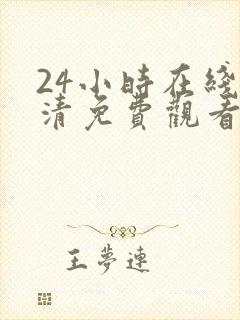 24小時在綫
清免費觀看
王夢連